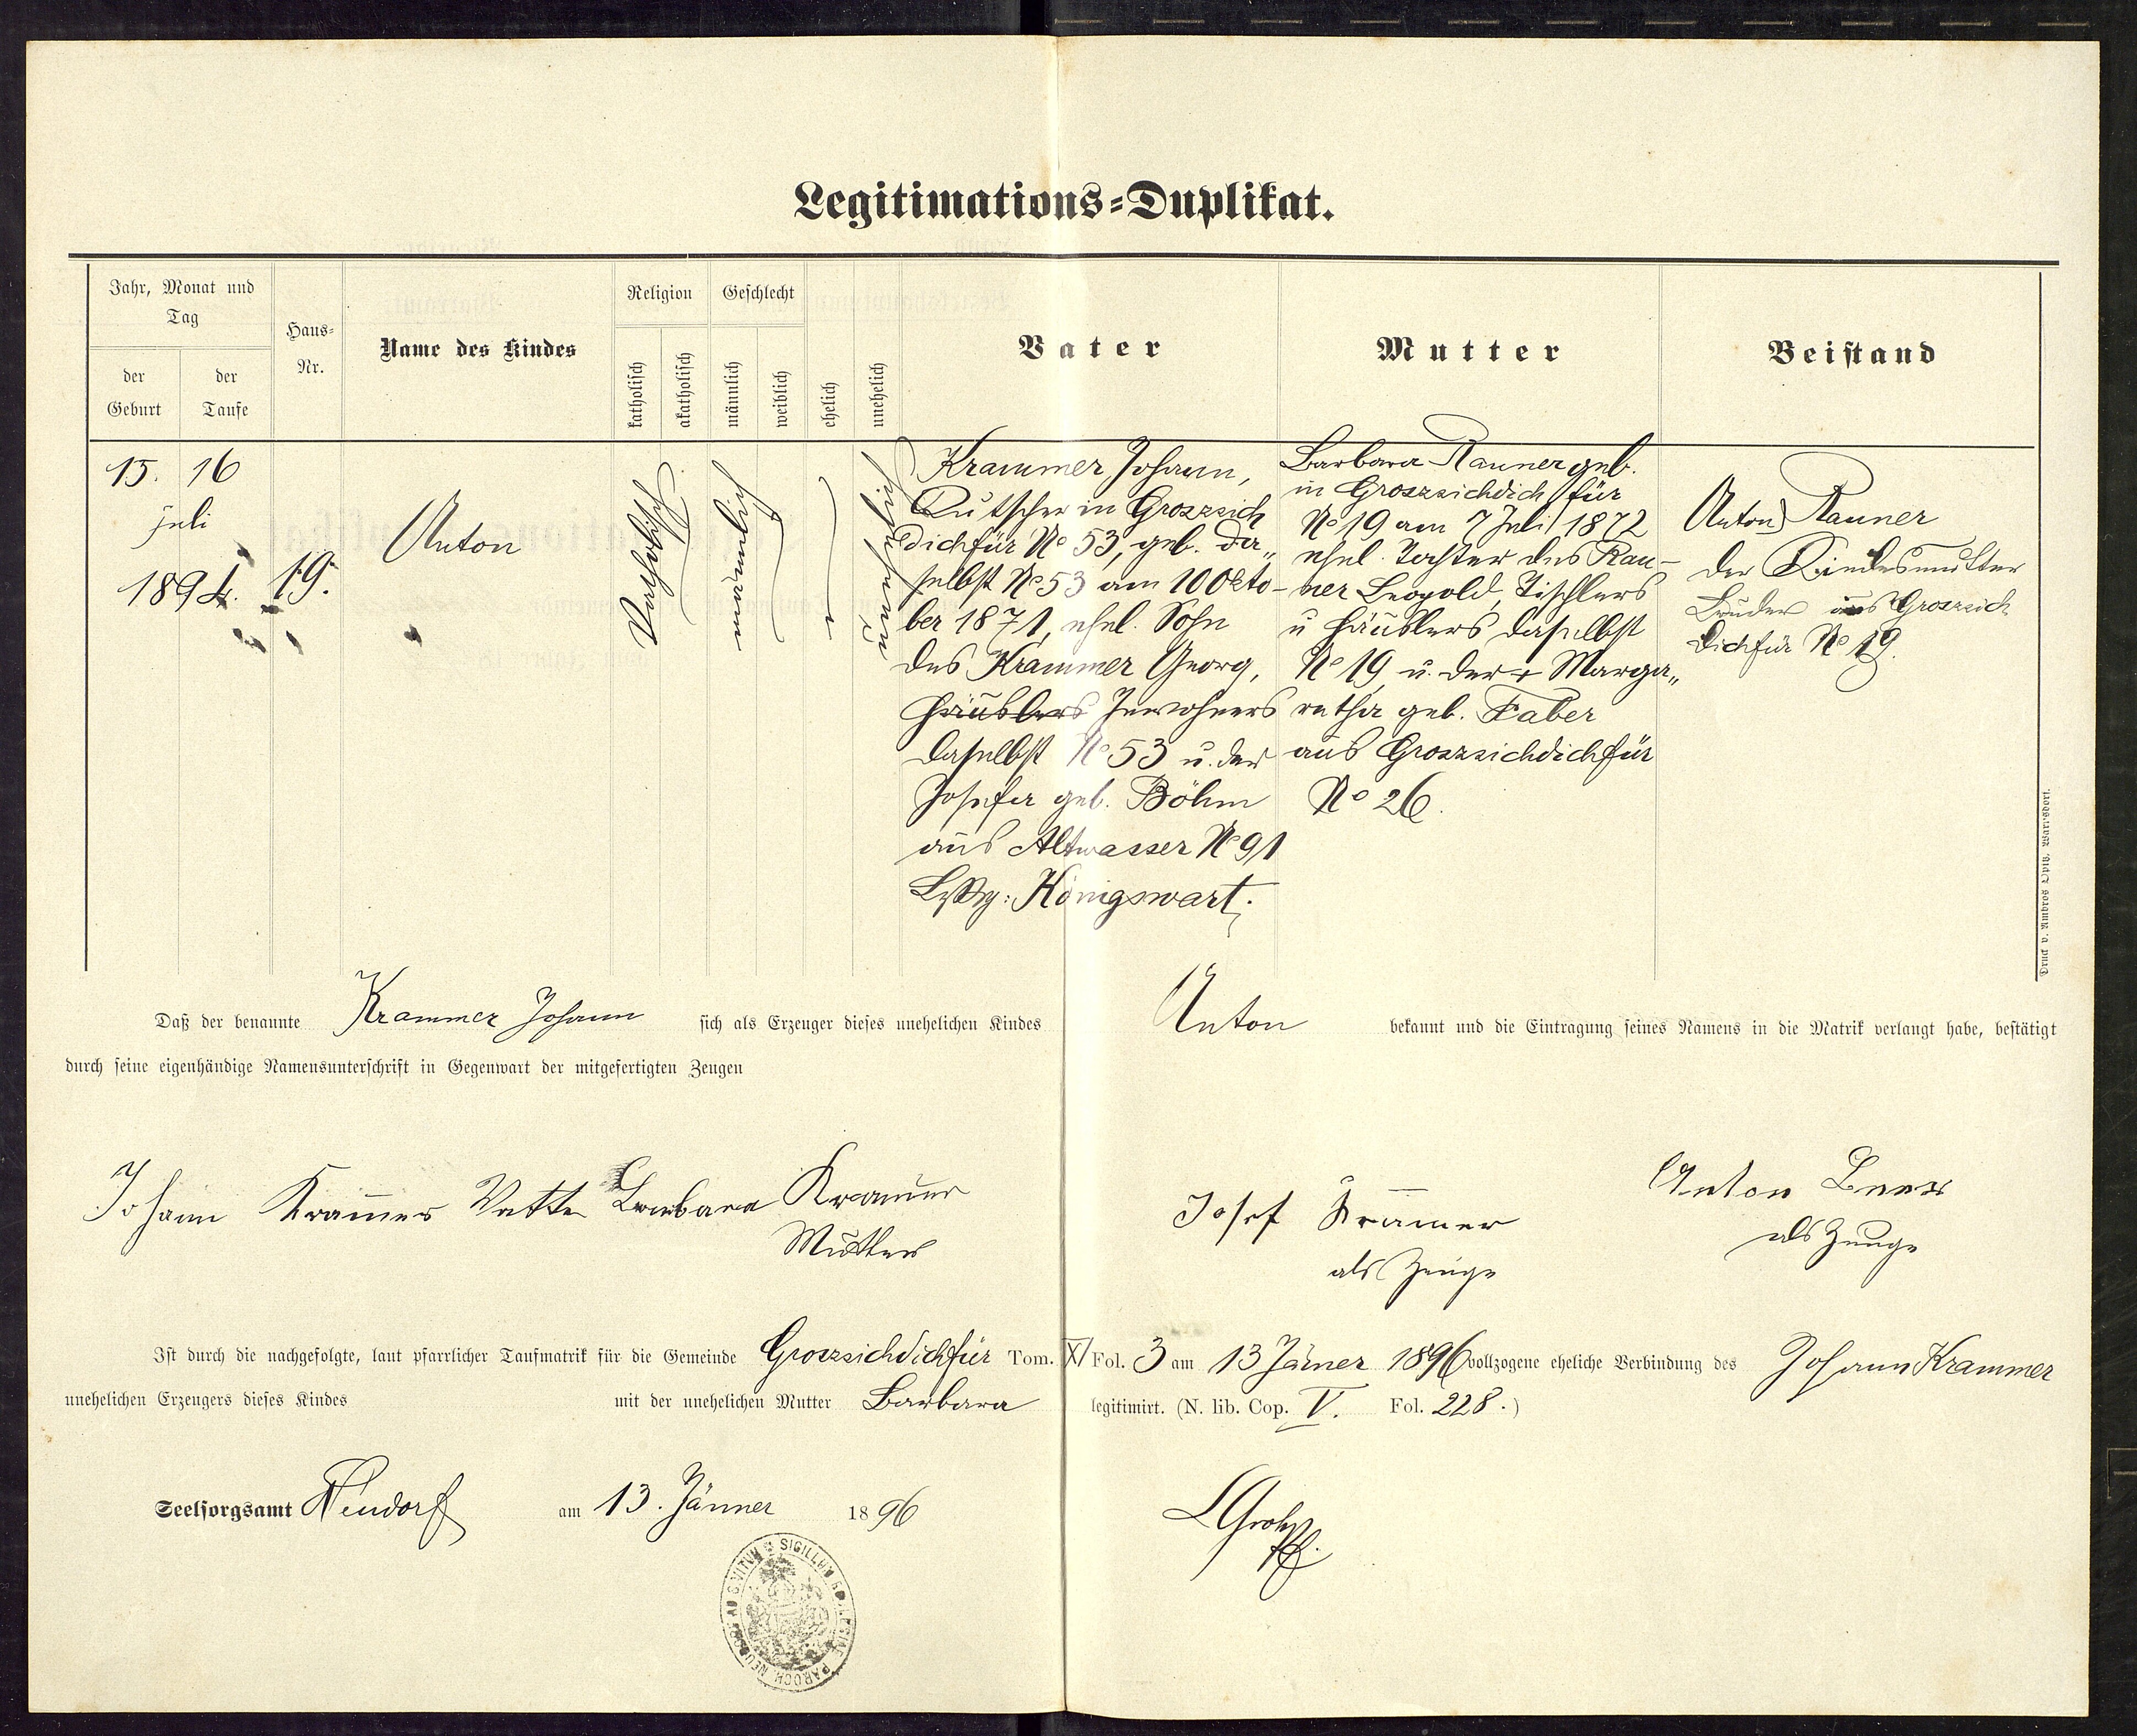 Legitimations=Duplikat.
Jahr, Monat und
Tag
der
Geburt
der
Taufe
Haus=
Nr.
Name des Kindes
Religion
katholisch
akatholisch
Geschlecht
männlich
weiblich
ehelich
unehelich
Vater
Mutter
Beistand
15. 16
juli
1894.
19.
Anton
Katholisch
männlich
unehelich
Krammer Johann,
Kutscher in Groszsich
dichfür No 53, geb. da„
selbst No 53 am 10 Okto-
ber 1871, ehel. Sohn
des Krammer Georg,
Häuslers Inwohners
daselbst No 53 u. der
Josefa geb. Böhm
aus Altwasser No 91
Königswart.
Barbara Rauner geb.
in Groszsichdichfür
No 19 am 7 Juli 1872
ehel. Tochter des Rau-
ner Leopold, Tischlers
u Häuslers daselbst
No 19 u. der + Marga„
retha geb. Faber
aus Groszsichdichfür
No 26.
Anton Rauner
der Kindesmutter
Bruder aus Groszsich
dichfür No 19.
Daß der benannte Krammer Johann sich als Erzeuger dieses unehelichen Kindes Anton bekannt und die Eintragung seines Namens in die Matrik verlangt habe, bestätigt
durch seine eigenhändige Namensunterschrift in Gegenwart der mitgefertigten Zeugen
Johann Kram̄er Vatter Barbara Kram̄er
Mutter
Josef Kram̄er
als Zeuge
Anton
als Zeuge
Ist durch die nachgefolgte, laut pfarrlicher Taufmatrik für die Gemeinde Groszsichdichfür Tom. XI Fol. 3 am 13 Jäner 1896 vollzogene eheliche Verbindung des Johann Krammer
unehelichen Erzeugers dieses Kindes mit der unehelichen Mutter Barbara legitimirt. (N. lib. Cop. V. Fol. 228.)
Seelsorgsamt Neudorf am 13. Jänner 1896
SIGILLUM
PAROCH
Druck v. Ambros Opitz, Warnsdorf.